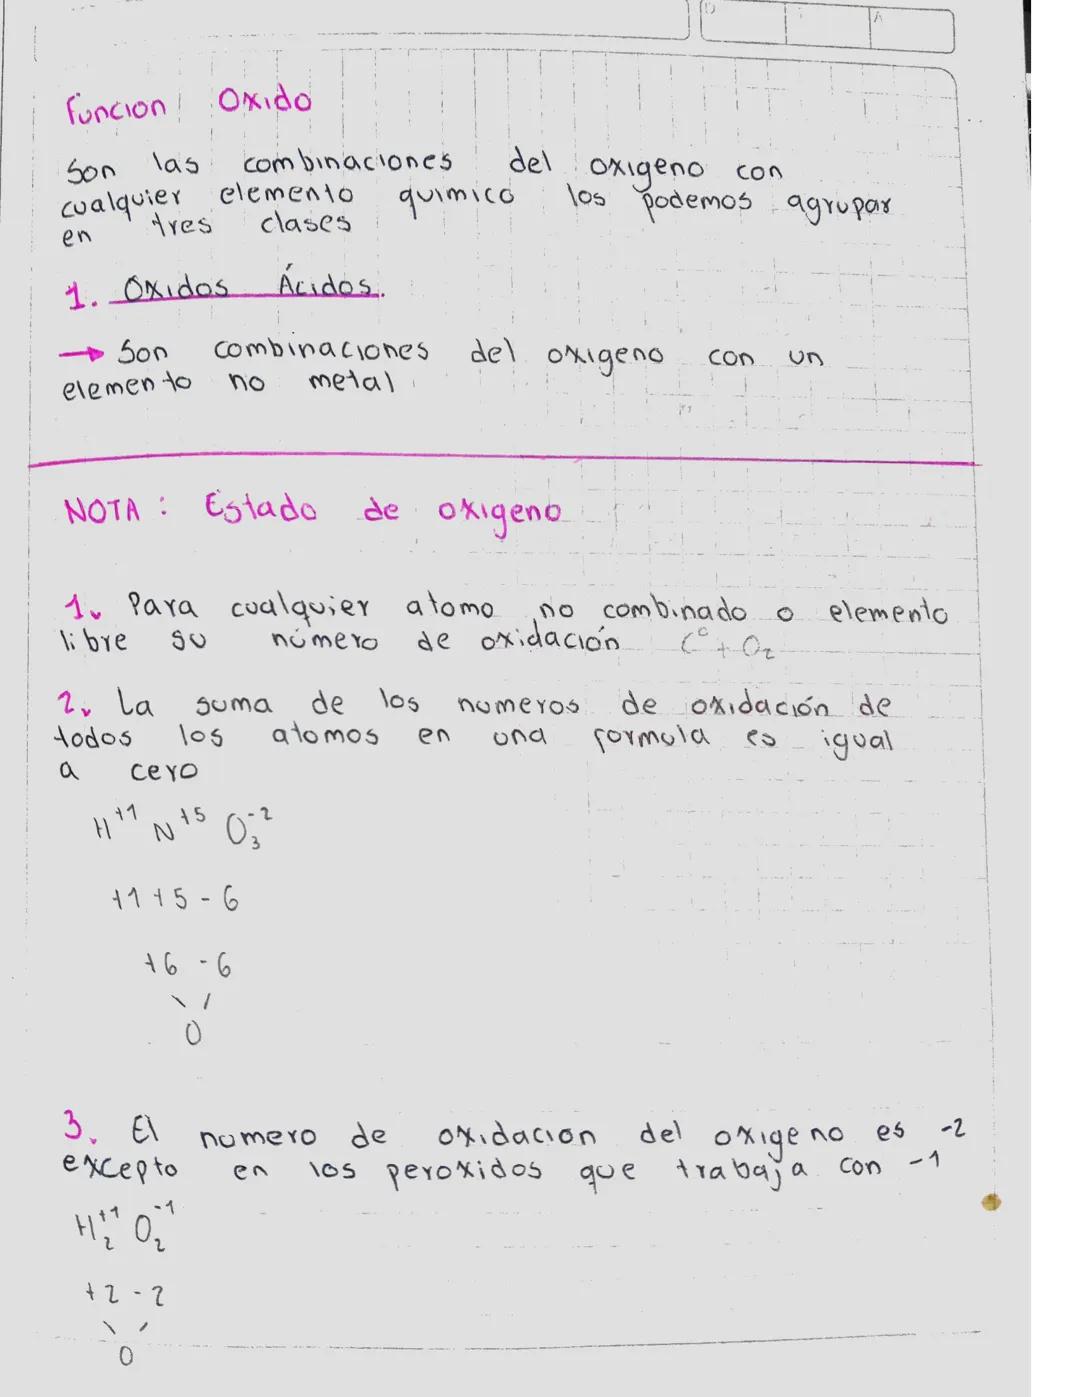 D
A
Funcion Oxido
Son las combinaciones del oxigeno con
cualquier elemento quimico los podemos agrupar
en tres clases
1. Oxidos Ácidos.
→ Son combinaciones del oxigeno con un
elemento no metal
NOTA: Estado de oxigeno
1. Para cualquier atomo no combinado o elemento
libre su número de oxidación C⁰ + O₂
2. La suma de los numeros de oxidación de
todos los atomos en una formula es igual
a cero
H⁺¹ N⁺⁵ O₃⁻²
+1 +5 - 6
+6 - 6
\ /
0
3. El numero de oxidacion del oxigeno es -2
excepto en los peroxidos que trabaja con -1
H₂⁺¹ O₂⁻¹
+2 - 2
\ /
0